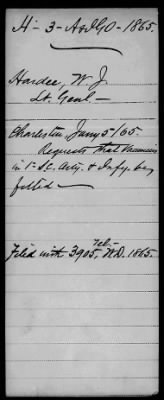 H - 3 - A&IGO - 1865.
Hardee, W. J.
Lt. Genl -
Charleston, Jany 5/65.
Requests that Vacancies
in 1st S.C. Arty. & Infy. be
filled -
Feb-
Filed with 3905, W.D. 1865.